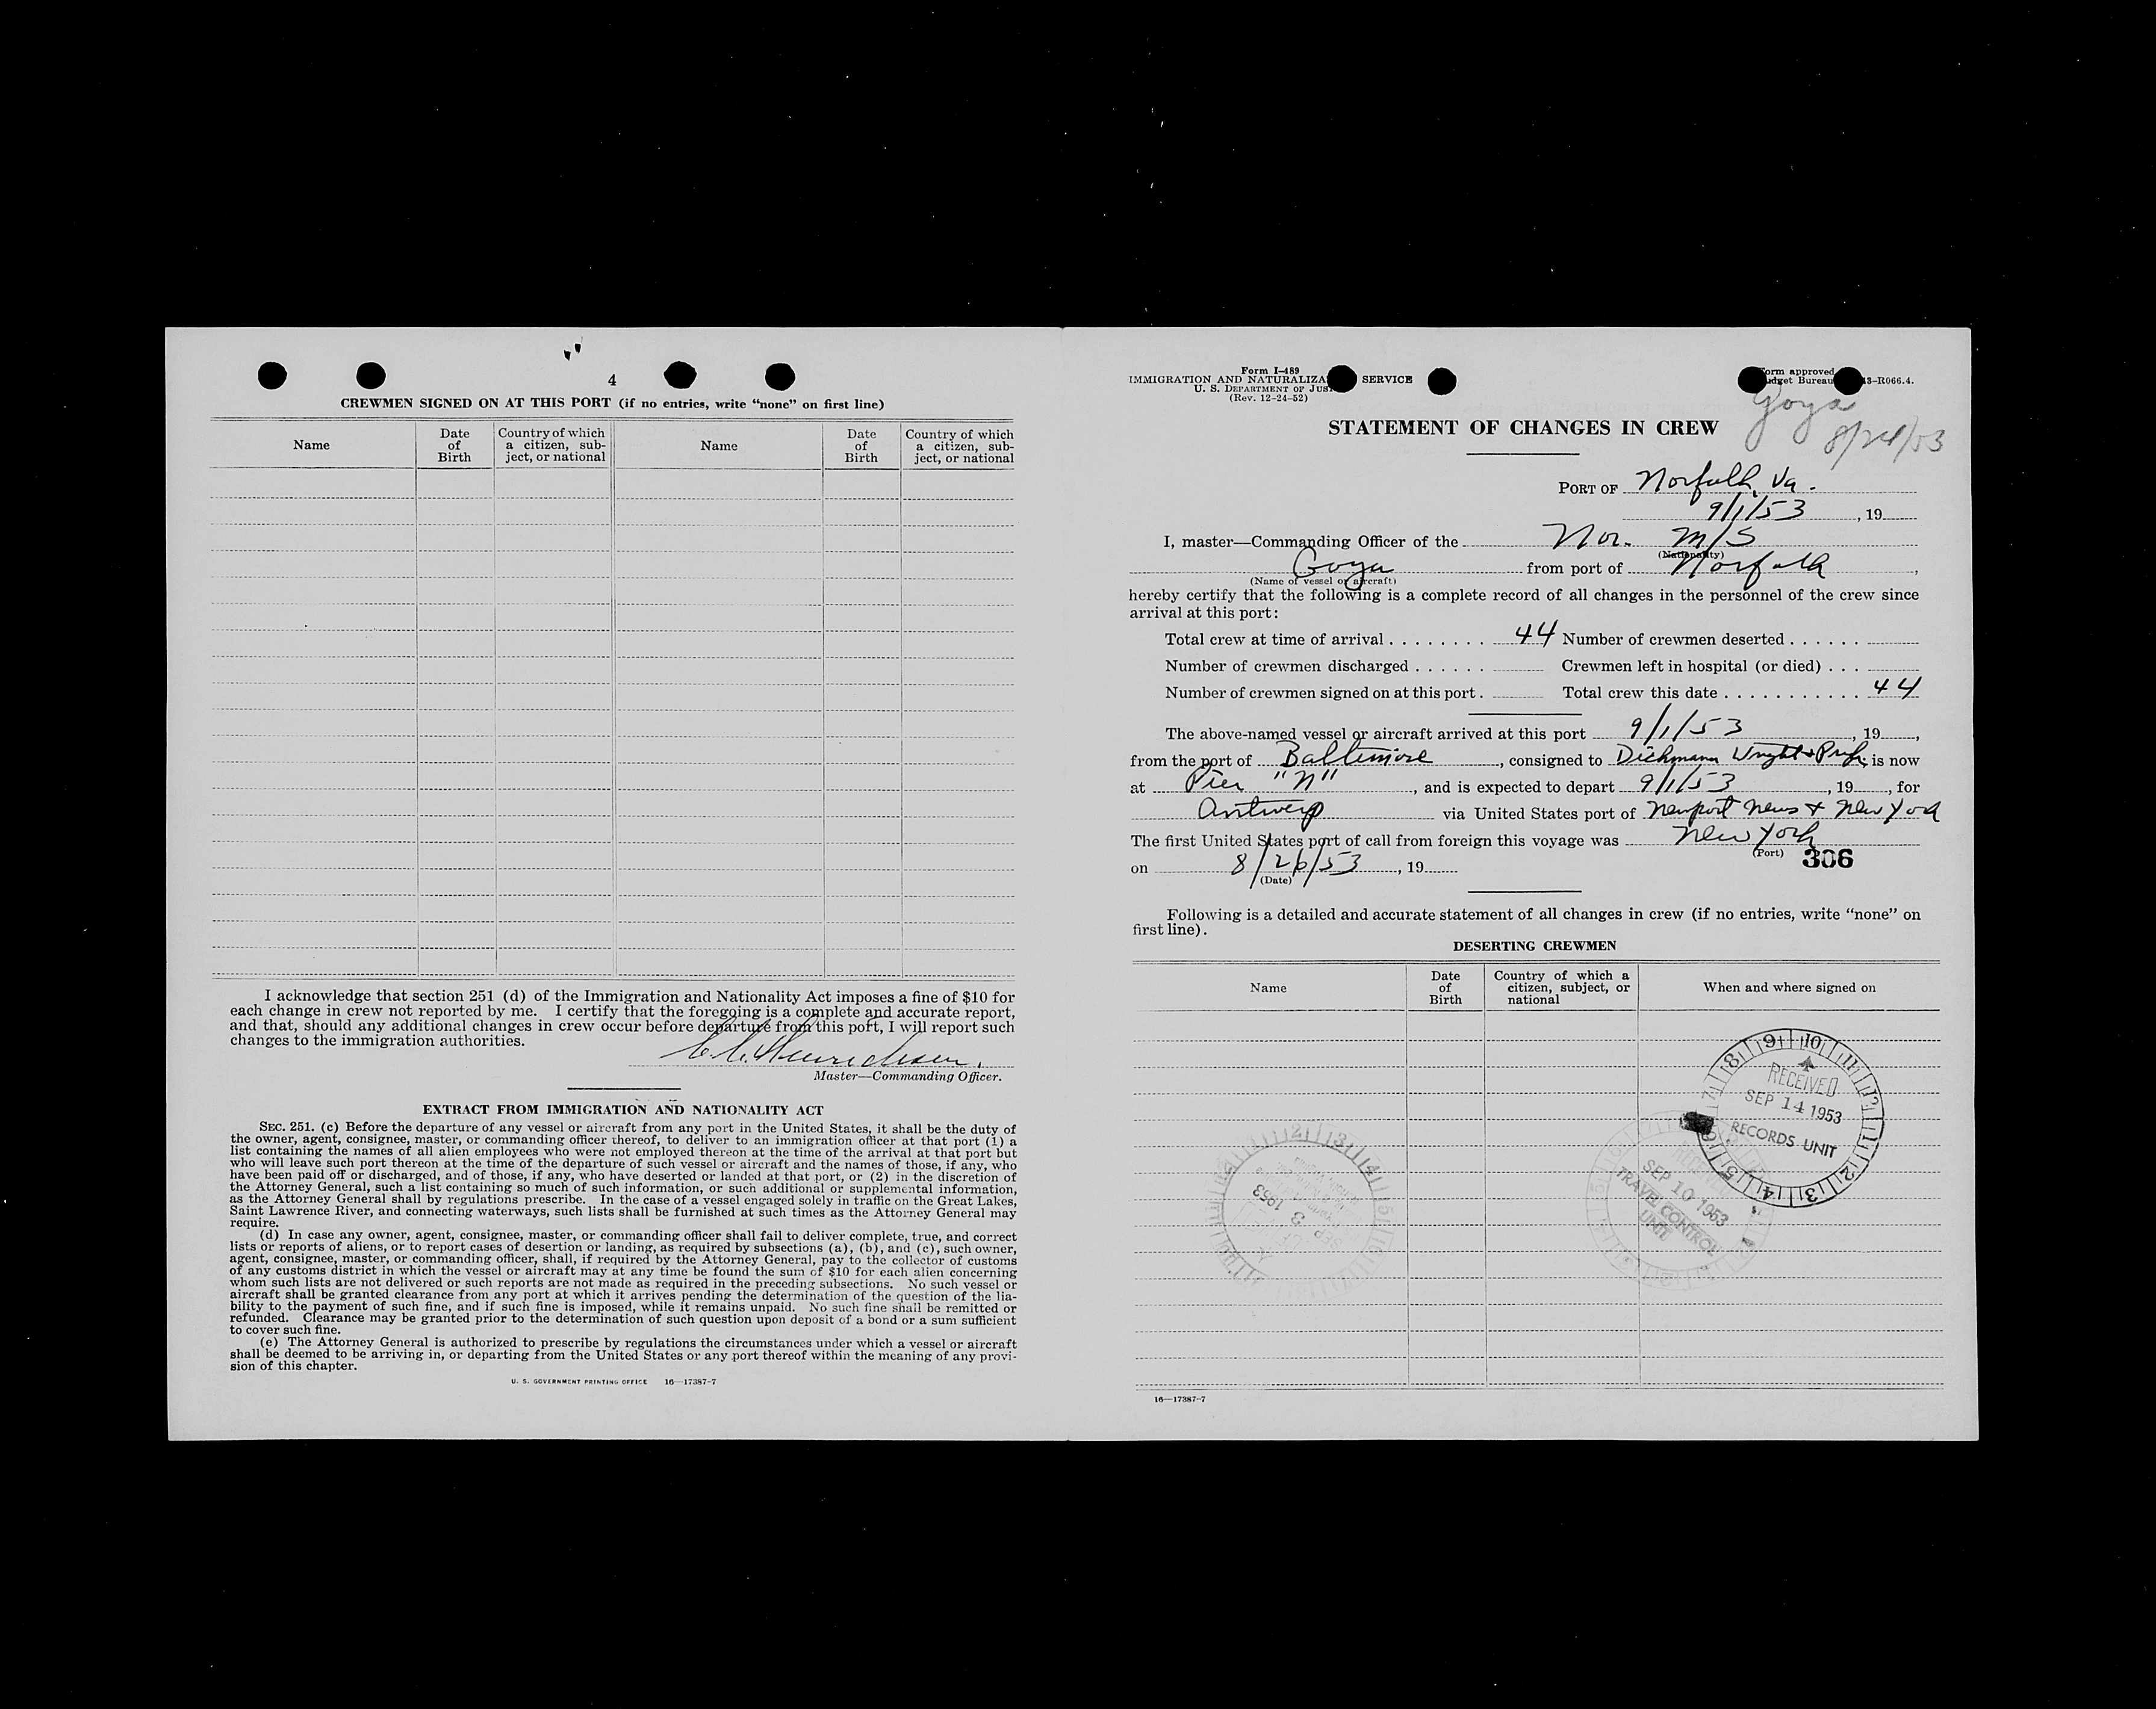 4
CREWMEN SIGNED ON AT THIS PORT (if no entries, write "none" on first line)
Name
Date of Birth
Country of which a citizen, subject, or national
Name
Date of Birth
Country of which a citizen, subject, or national
I acknowledge that section 251 (d) of the Immigration and Nationality Act imposes a fine of $10 for
each change in crew not reported by me. I certify that the foregoing is a complete and accurate report,
and that, should any additional changes in crew occur before departure from this port, I will report such
changes to the immigration authorities.
Master—Commanding Officer.
EXTRACT FROM IMMIGRATION AND NATIONALITY ACT
SEC. 251. (c) Before the departure of any vessel or aircraft from any port in the United States, it shall be the duty of
the owner, agent, consignee, master, or commanding officer thereof, to deliver to an immigration officer at that port (1) a
list containing the names of all alien employees who were not employed thereon at the time of the arrival at that port but
who will leave such port thereon at the time of the departure of such vessel or aircraft and the names of those, if any, who
have been paid off or discharged, and of those, if any, who have deserted or landed at that port, or (2) in the discretion of
the Attorney General, such a list containing so much of such information, or such additional or supplemental information,
as the Attorney General shall by regulations prescribe. In the case of a vessel engaged solely in traffic on the Great Lakes,
Saint Lawrence River, and connecting waterways, such lists shall be furnished at such times as the Attorney General may
require.
(d) In case any owner, agent, consignee, master, or commanding officer shall fail to deliver complete, true, and correct
lists or reports of aliens, or to report cases of desertion or landing, as required by subsections (a), (b), and (c), such owner,
agent, consignee, master, or commanding officer, shall, if required by the Attorney General, pay to the collector of customs
of any customs district in which the vessel or aircraft may at any time be found the sum of $10 for each alien concerning
whom such lists are not delivered or such reports are not made as required in the preceding subsections. No such vessel or
aircraft shall be granted clearance from any port at which it arrives pending the determination of the question of the lia-
bility to the payment of such fine, and if such fine is imposed, while it remains unpaid. No such fine shall be remitted or
refunded. Clearance may be granted prior to the determination of such question upon deposit of a bond or a sum sufficient
to cover such fine.
(e) The Attorney General is authorized to prescribe by regulations the circumstances under which a vessel or aircraft
shall be deemed to be arriving in, or departing from the United States or any port thereof within the meaning of any provi-
sion of this chapter.
U. S. GOVERNMENT PRINTING OFFICE 16—17387-7
Form I-489
IMMIGRATION AND NATURALIZA SERVICE
U. S. DEPARTMENT OF JUS
(Rev. 12-24-52)
orm approved
udget Bureau 3-R066.4.
Goya
STATEMENT OF CHANGES IN CREW
PORT OF Norfolk, Va.
9/1/53, 19
I, master—Commanding Officer of the Nor. M/S
(Nationality)
Goya from port of Norfolk,
(Name of vessel or aircraft)
hereby certify that the following is a complete record of all changes in the personnel of the crew since
arrival at this port:
Total crew at time of arrival 44 Number of crewmen deserted
Number of crewmen discharged Crewmen left in hospital (or died)
Number of crewmen signed on at this port. Total crew this date 44
The above-named vessel or aircraft arrived at this port 9/1/53, 19,
from the port of Baltimore, consigned to Dichmann Wright & Pugh, is now
at Pier "N", and is expected to depart 9/1/53, 19, for
Antwerp via United States port of Newport News & New York
The first United States port of call from foreign this voyage was New York
(Port) 306
on 8/26/53, 19
(Date)
Following is a detailed and accurate statement of all changes in crew (if no entries, write "none" on
first line).
DESERTING CREWMEN
Name
Date of Birth
Country of which a citizen, subject, or national
When and where signed on
RECEIVED
SEP 14 1953
RECORDS UNIT
SEP 10 1953
TRAVEL CONTROL
UNIT
SEP 3 1953
16—17387-7